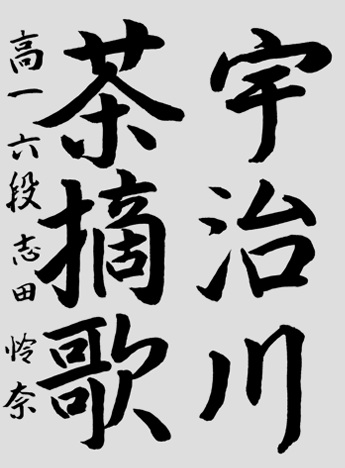 宇治川
茶摘歌
高一 六段 志田 怜奈